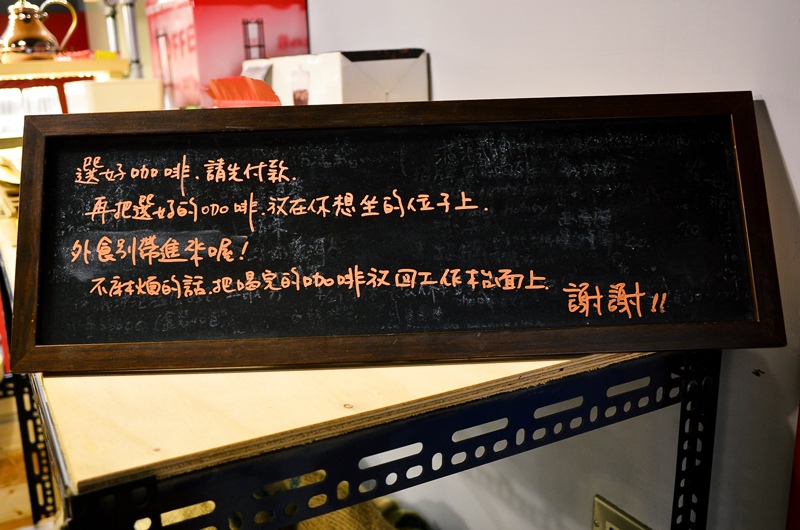 FFE
選好咖啡.請先付款.
再把選好的咖啡.放在你想坐的位子上.
外食別帶進來喔!
不麻煩的話.把喝完的咖啡放回工作枱面上.
謝謝!!